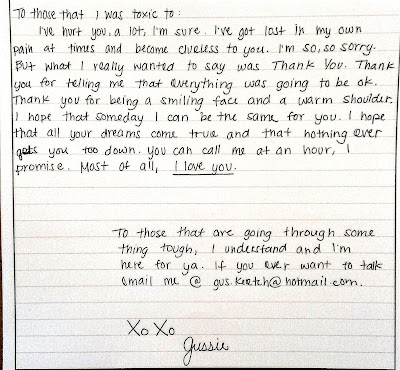 To those that I was toxic to:
I've hurt you, a lot, I'm sure. I've got lost in my own
pain at times and become clueless to you. I'm so, so sorry.
But what I really wanted to say was Thank You. Thank
you for telling me that everything was going to be ok.
Thank you for being a smiling face and a warm shoulder.
I hope that someday I can be the same for you. I hope
that all your dreams come true and that nothing ever
gets you too down. You can call me at an hour, I
promise. Most of all, I love you.
To those that are going through some
thing tough, I understand and I'm
here for ya. If you ever want to talk
email me @ gus.keetch@hotmail.com.
Xo Xo
Gussie